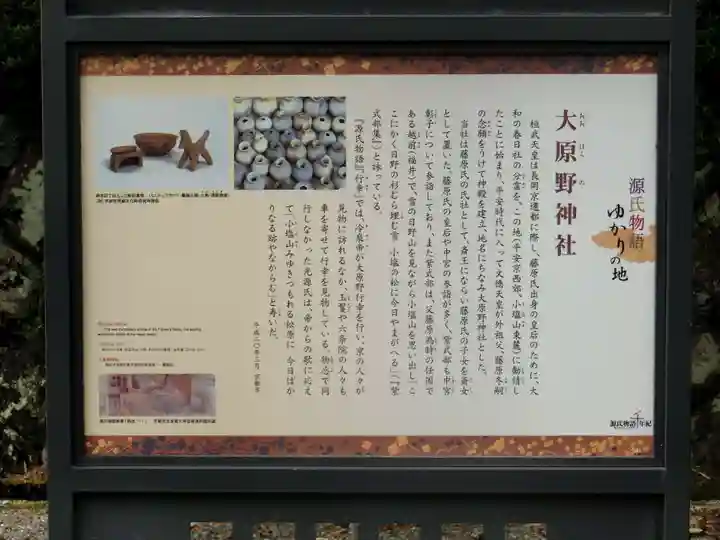 源氏物語
ゆかりの地
大原野神社
桓武天皇は長岡京遷都に際し、藤原氏出身の皇后のために、大
和の春日社の分霊を、この地(平安京西郊、小塩山東麓)に勧請し
たことに始まり、平安時代に入って文徳天皇が外祖父、藤原冬嗣
の念願をうけて神殿を建立、地名にちなみ大原野神社とした。
当社は藤原氏の氏社として、斎王にならい藤原氏の子女を斎女
として置いた。藤原氏の皇后や中宮の参詣が多く、紫式部も中宮
彰子について参詣しており、また紫式部は、父藤原為時の任国で
ある越前(福井)で、雪の日野山を見ながら小塩山を思い出し「こ
こにかく日野の杉むら埋む雪 小塩の松に今日やまがへる」(『紫
式部集』)と詠っている。
『源氏物語』「行幸」では、冷泉帝が大原野行幸を行い、京の人々が
見物に訪れるなか、玉鬘や六条院の人々も
車を寄せて行幸を見物している。物忌で同
行しなかった光源氏は、帝からの歌に応え
て「小塩山みゆきつもれる松原に 今日ばか
りなる跡やなからむ」と寿いだ。
平成二〇年三月 京都市
源氏物語千年紀